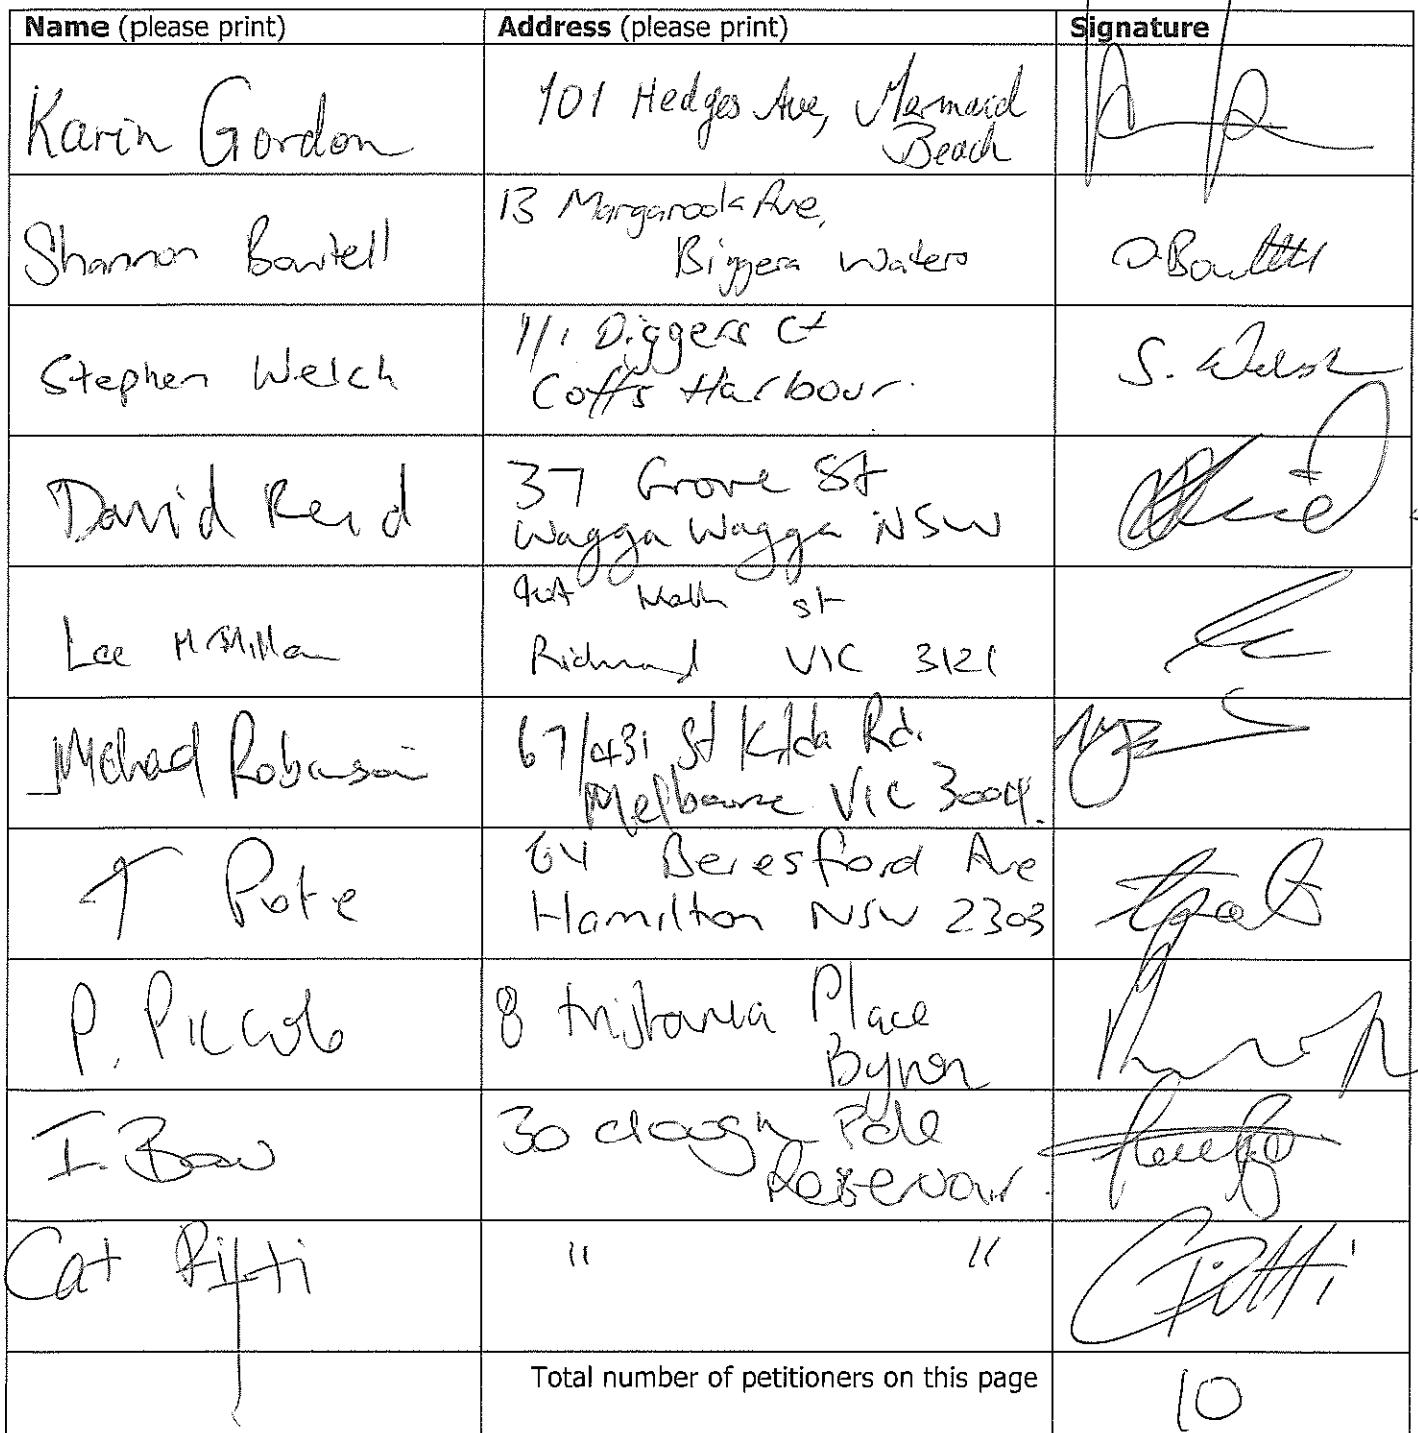 Name (please print) Address (please print) Signature
Karin Gordon
101 Hedges Ave, Mermaid
Beach
Shannon Bowtell
13 Ave,
Biggera Waters
Stephen Welch
1/1 Diggers Ct
Coffs Harbour.
S. Welch
David Reid
37 Grove St
Wagga Wagga NSW
Lee McMillan
St
Richmond VIC 3121
Michael Robinson
67/431 St Kilda Rd.
Melbourne VIC 3004.
T Pote
64 Beresford Ave
Hamilton NSW 2303
P. Piccolo
8 tristania Place
Byron
I.
30 Pde
Reservoir.
Cat Pitti
" "
CPitti
Total number of petitioners on this page 10